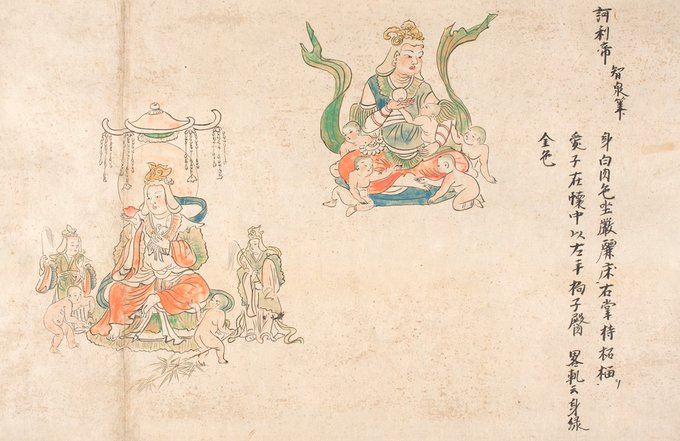 訶利帝 智泉筆
身白肉色坐嚴麗床右掌持柘榴
愛子在懷中以左手子臀 畧軌云身緑
金色